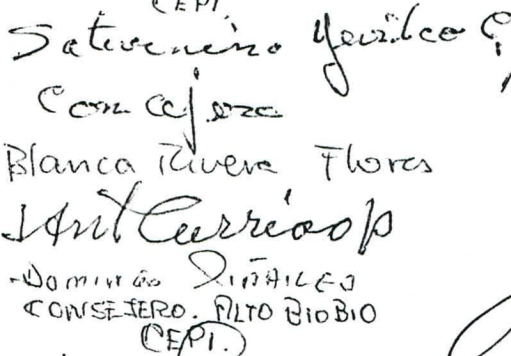 CEPI.
Saturnino Yevilao C,
Concejero
Blanca Rivera Flores
J Ant Curriao p
-Domingo PIÑAILEO
CONSEJERO. ALTO BIOBIO
CEPI.